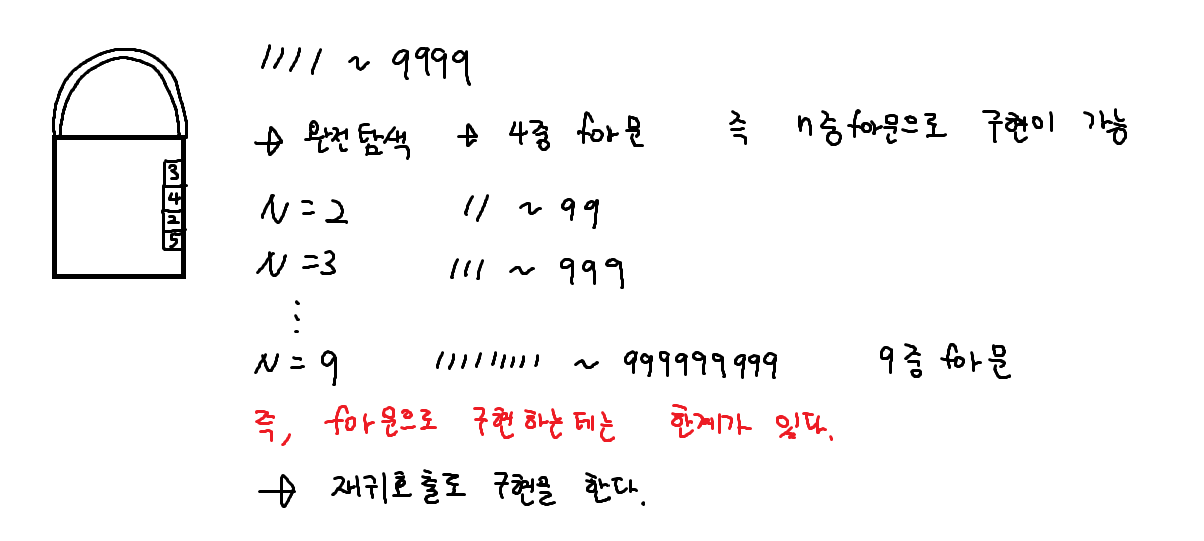 1111 ~ 9999
→ 완전탐색 → 4중 for문 즉 n중for문으로 구현이 가능
3
4
2
5
N = 2 11 ~ 99
N = 3 111 ~ 999
⋮
N = 9 111111111 ~ 999999999 9중 for문
즉, for문으로 구현하는데는 한계가 있다.
→ 재귀호출로 구현을 한다.